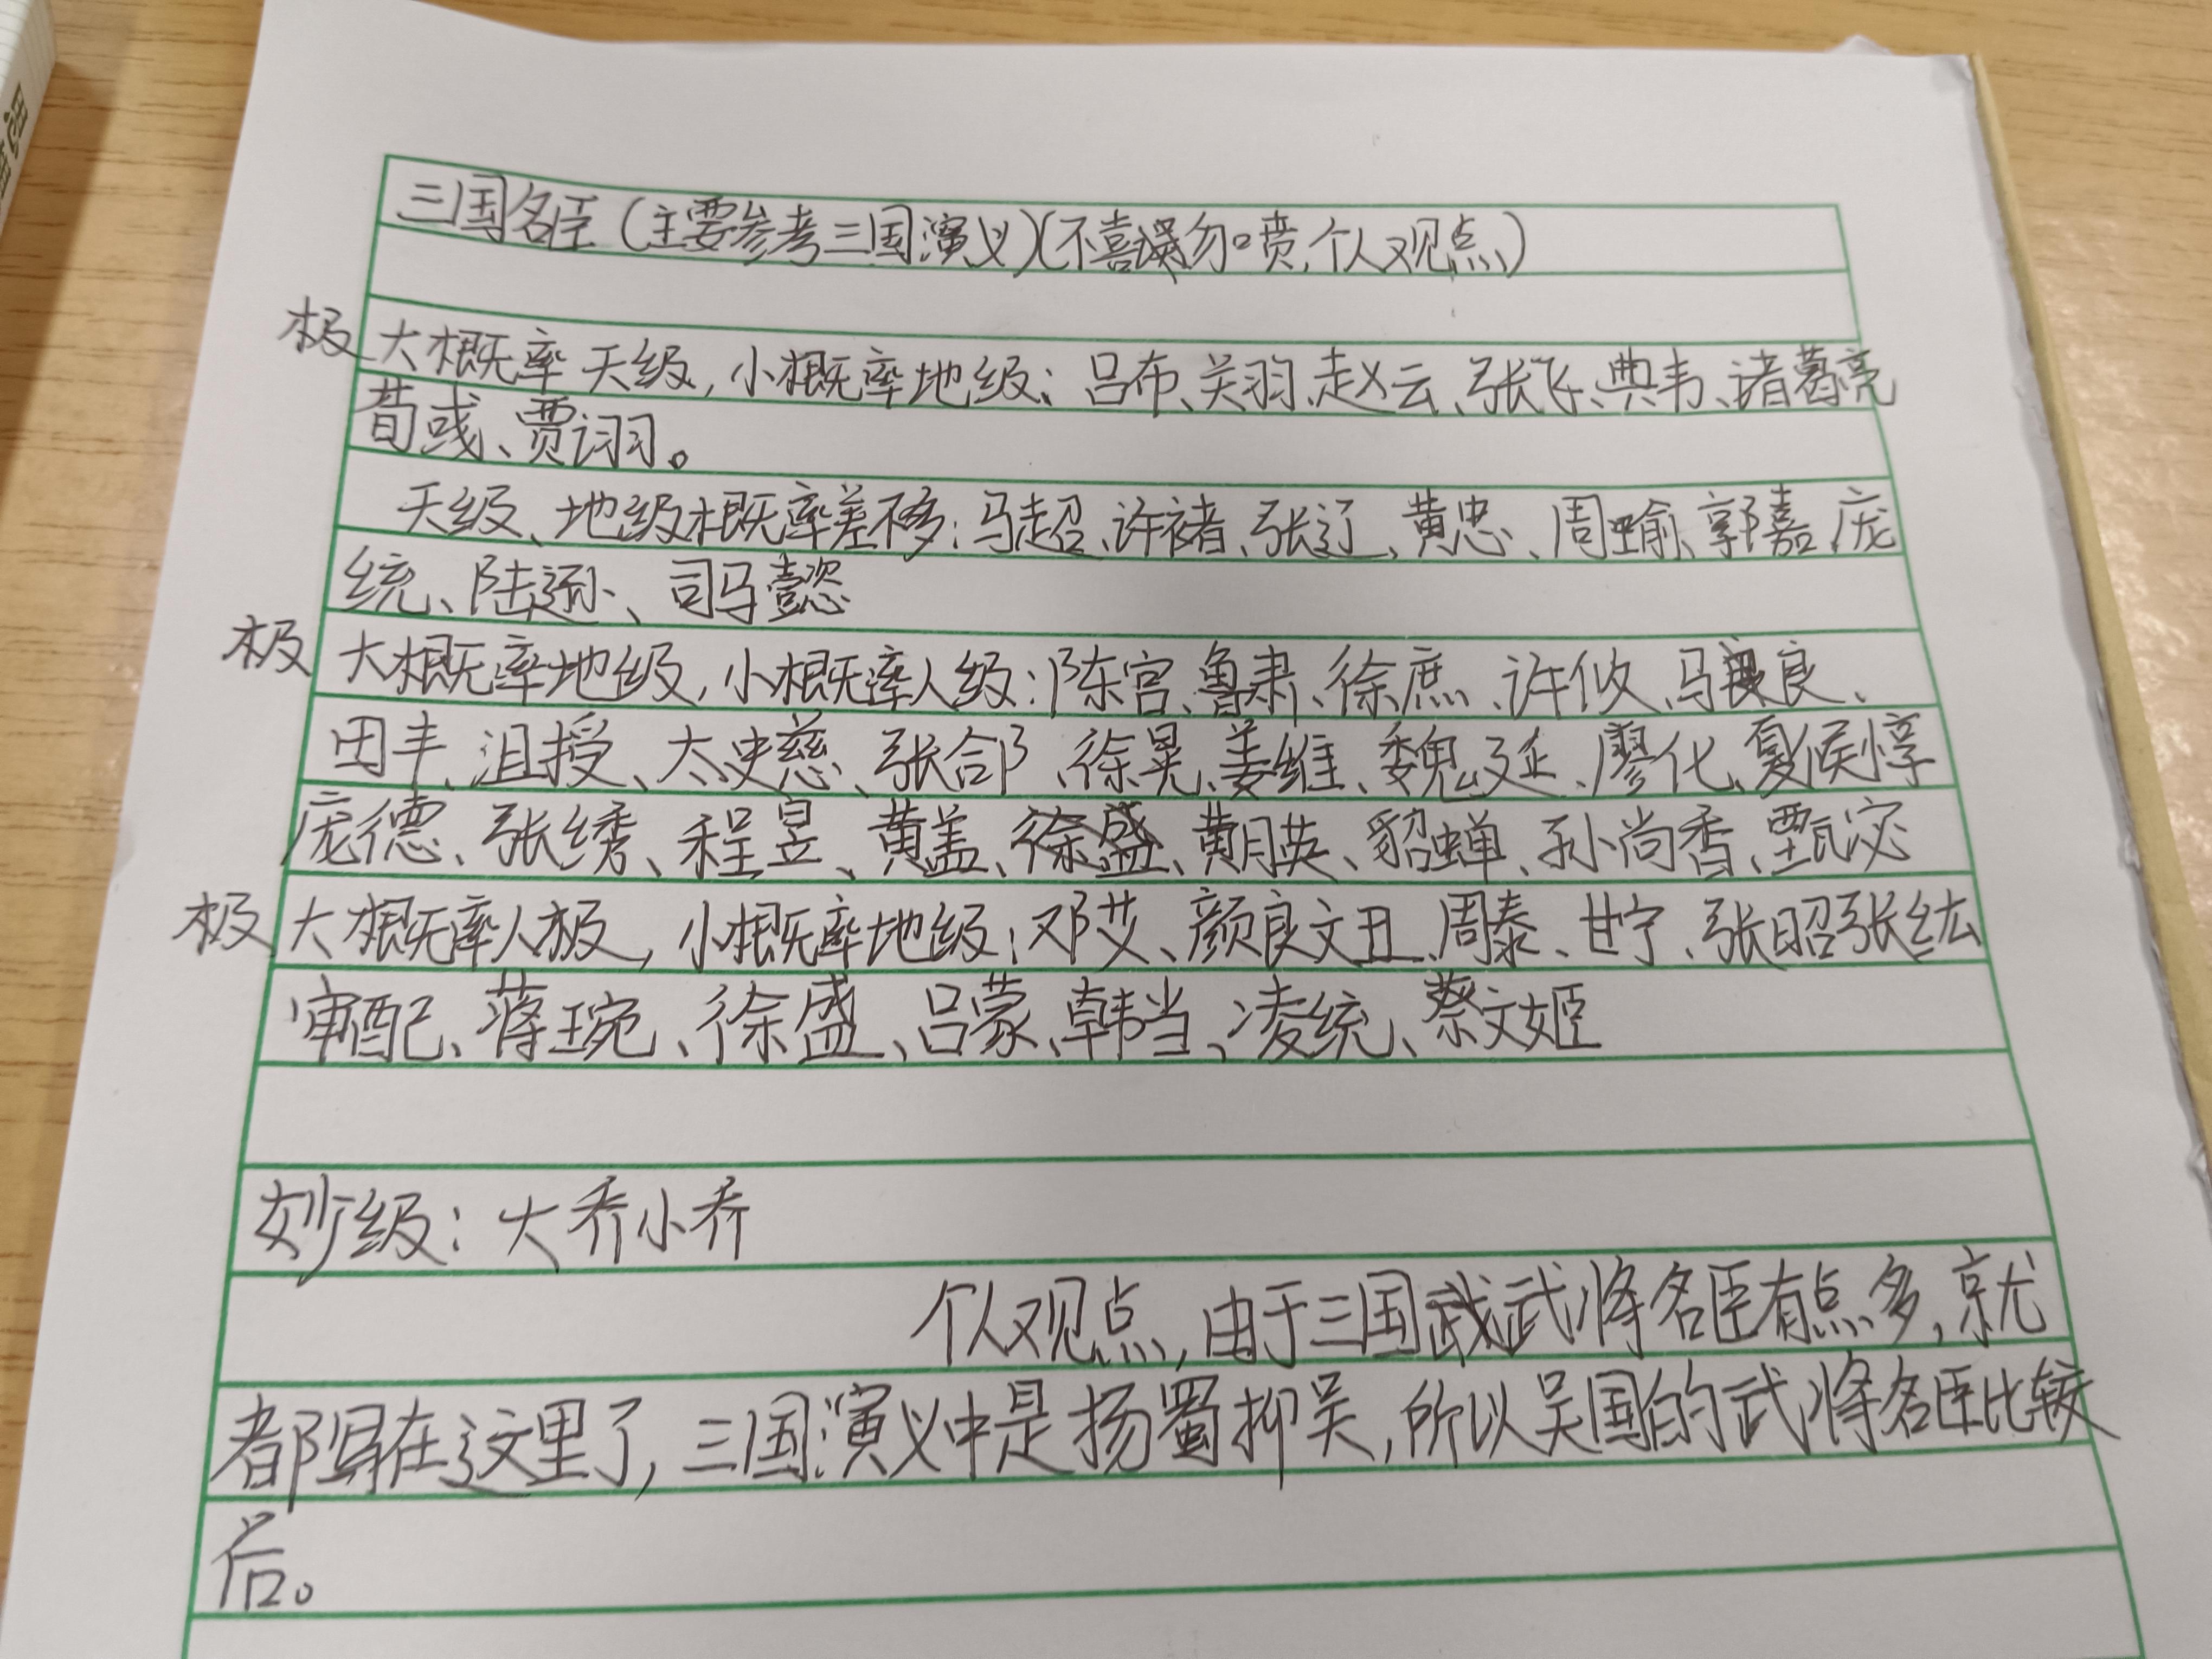 三国名臣(主要参考三国演义)(不喜勿喷,个人观点)
极大概率天级,小概率地级:吕布、关羽、赵云、张飞、典韦、诸葛亮
荀彧、贾诩。
天级、地级概率差不多:马超、许褚、张辽、黄忠、周瑜、郭嘉、庞
统、陆逊、司马懿
极大概率地级,小概率人级:陈宫、鲁肃、徐庶、许攸、马良、
田丰、沮授、太史慈、张郃、徐晃、姜维、魏延、廖化、夏侯惇
庞德、张绣、程昱、黄盖、徐盛、黄月英、貂蝉、孙尚香、甄宓
极大概率人极,小概率地级:邓艾、颜良文丑、周泰、甘宁、张昭张纮
审配、蒋琬、徐盛、吕蒙、韩当、凌统、蔡文姬
妙级:大乔小乔
个人观点,由于三国武将名臣有点多,就
都写在这里了,三国演义中是扬蜀抑吴,所以吴国的武将名臣比较
后。